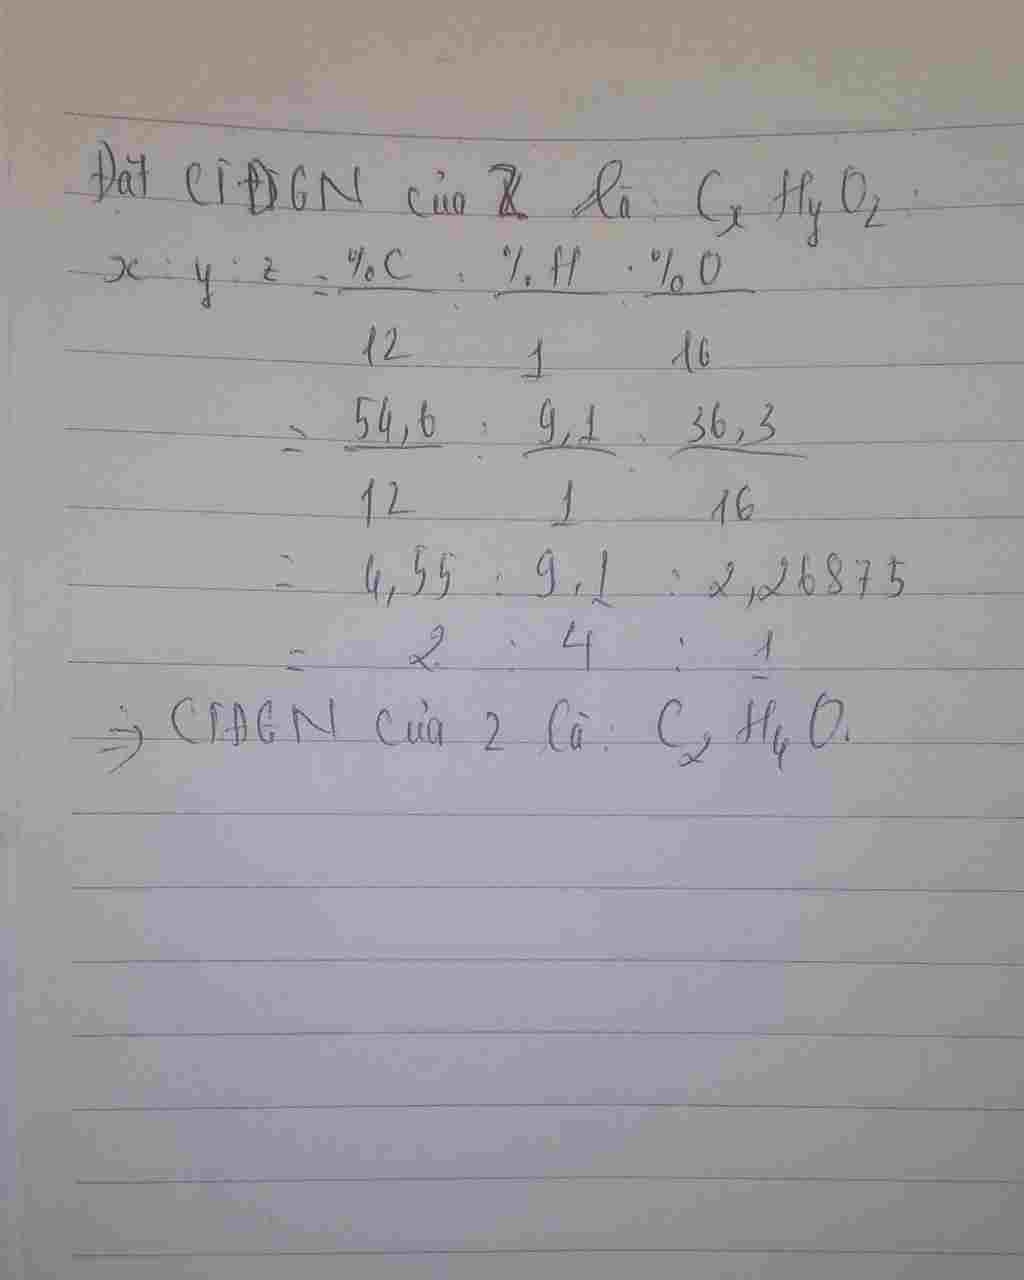 Đặt CTĐGN của Z là: CxHyOz:
x : y : z = %C : %H : %O
12 1 16
= 54,6 : 9,1 : 36,3
12 1 16
= 4,55 : 9,1 : 2,26875
= 2 : 4 : 1
=> CTĐGN của Z là: C2H4O.